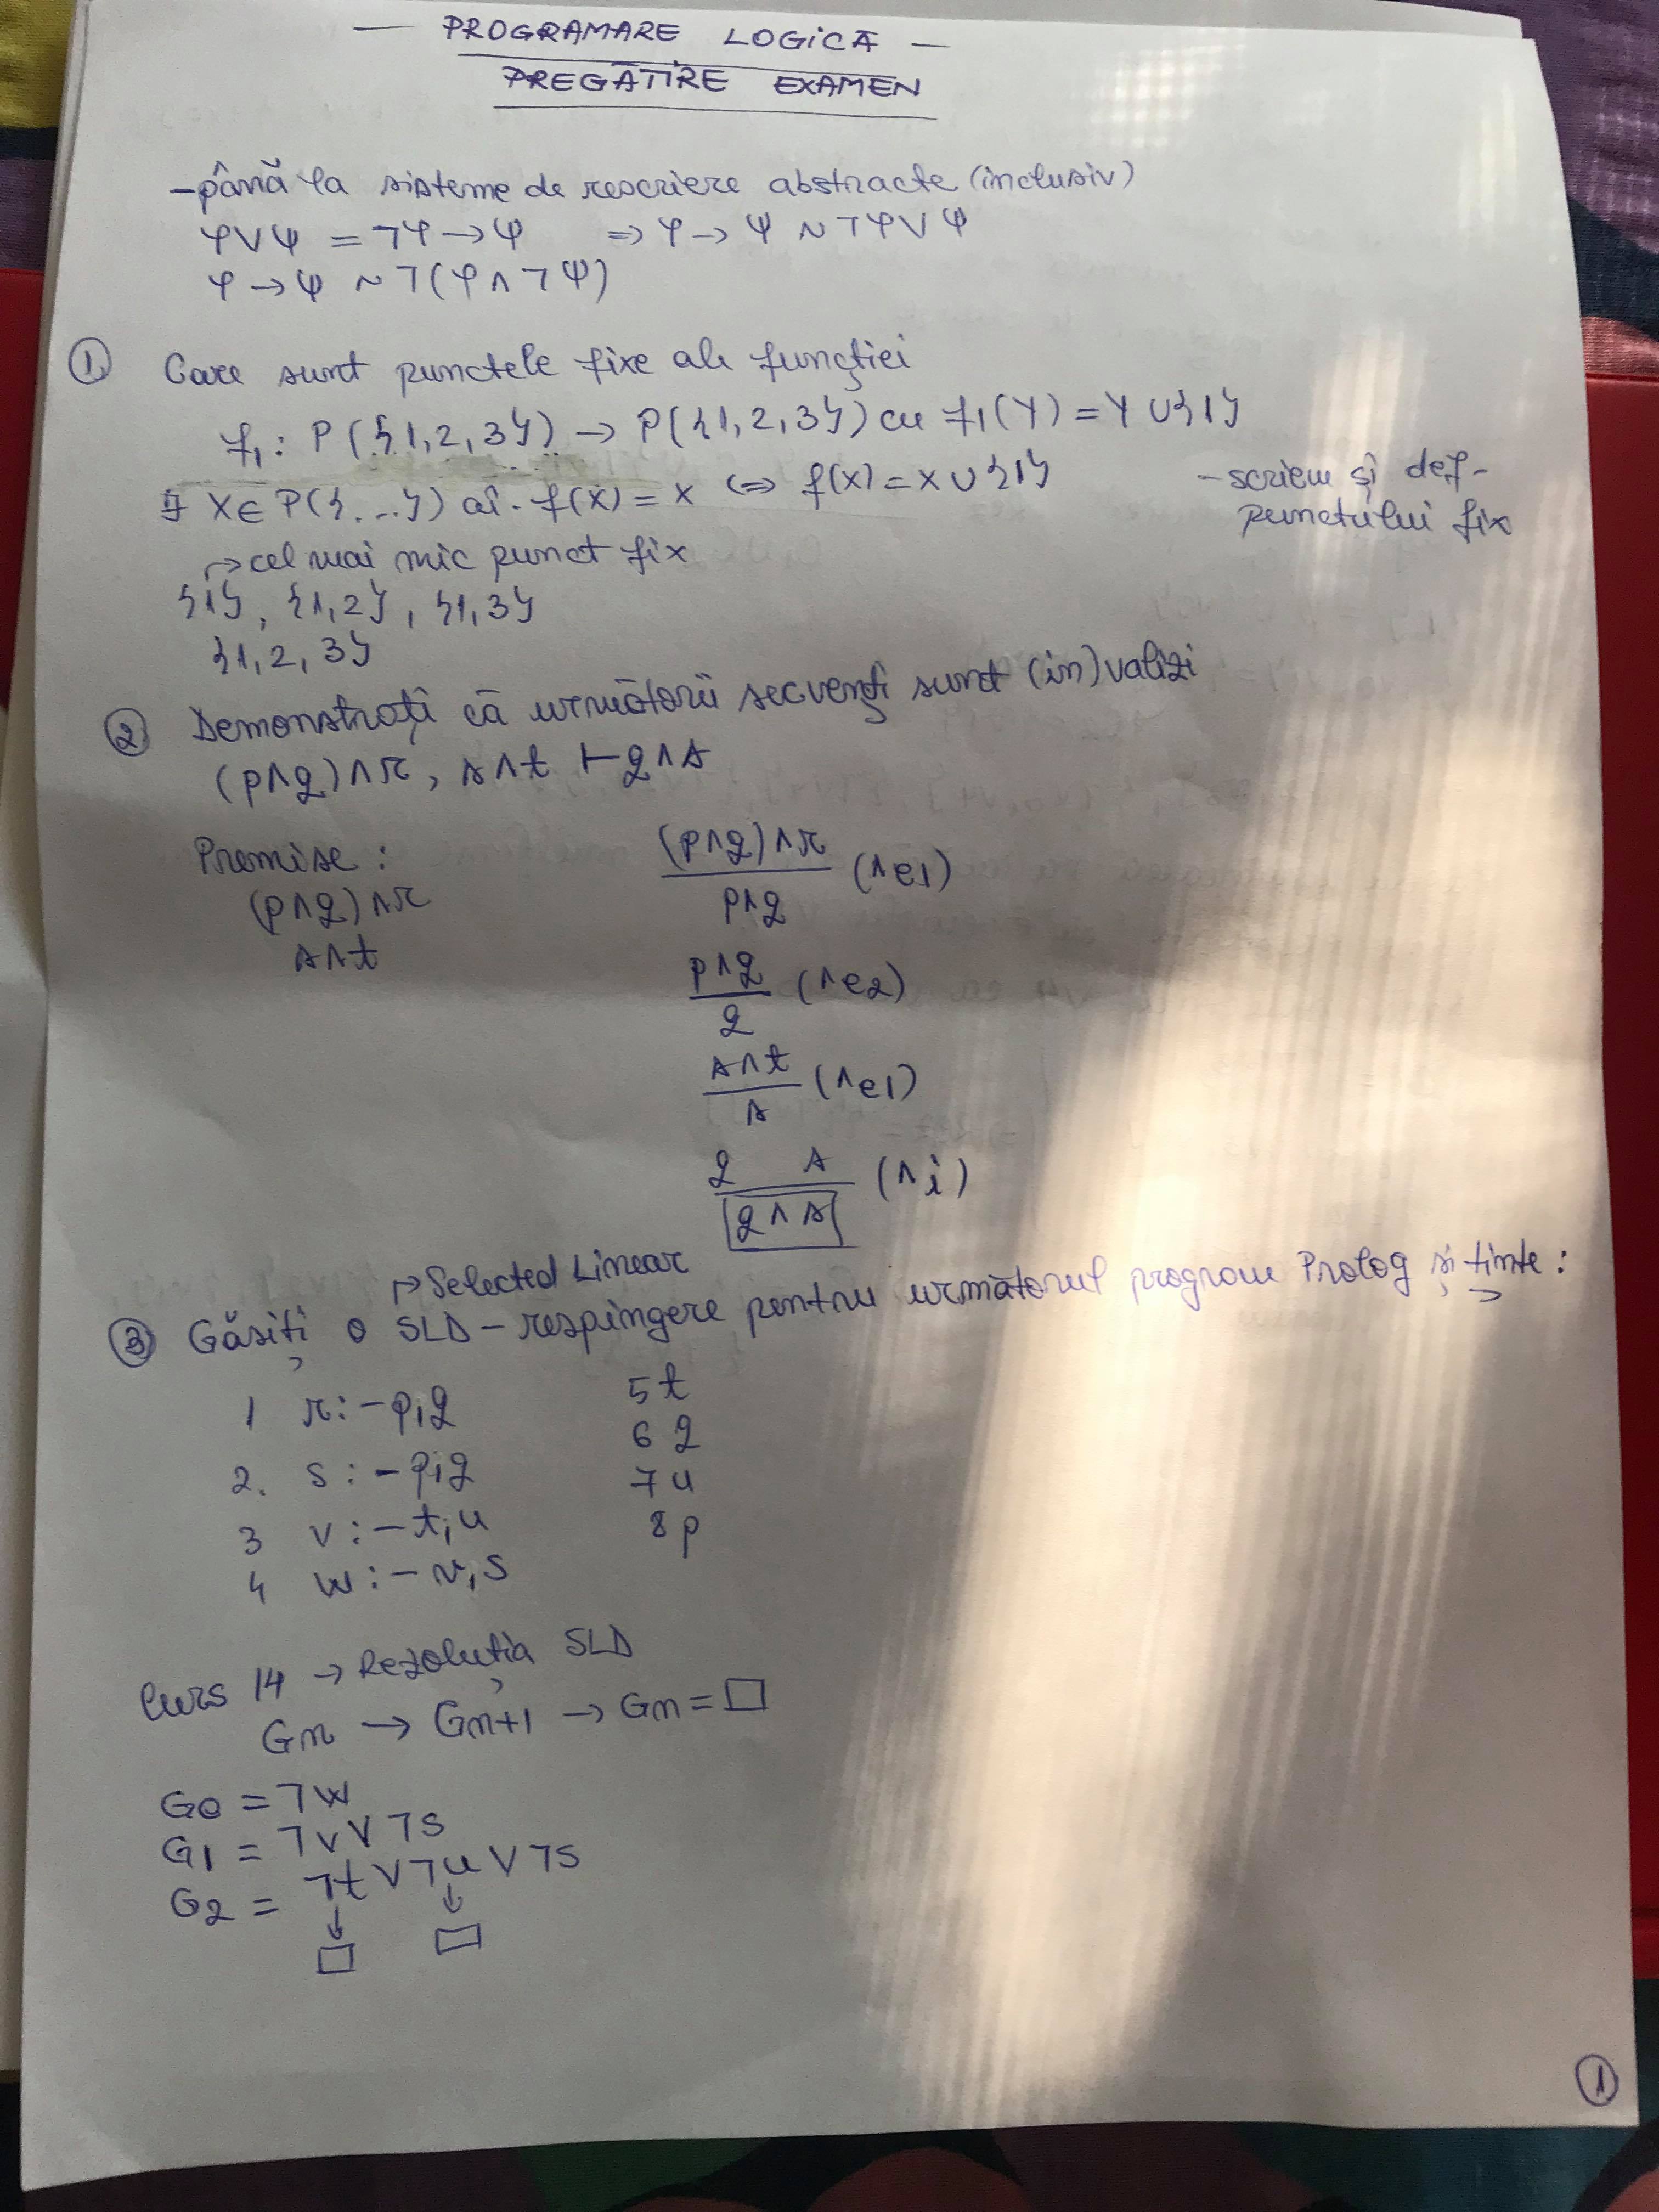 — PROGRAMARE LOGICĂ —
PREGĂTIRE EXAMEN
- până la sisteme de rescriere abstracte (inclusiv)
φ∨ψ = ¬φ → ψ ⇒ φ → ψ ~ ¬φ∨ψ
φ → ψ ~ ¬(φ∧¬ψ)
① Care sunt punctele fixe ale funcției
f₁: P({1,2,3}) → P({1,2,3}) cu f₁(Y) = Y ∪ {1}
∃ X ∈ P({...}) aî. f(X) = X ⇔ f(X) = X ∪ {1}
- scriem și def-
punctului fix
↱ cel mai mic punct fix
{1}, {1,2}, {1,3}
{1,2,3}
② Demonstrați că următorii secvenți sunt (in)valizi
(p∧q)∧r, s∧t ⊢ q∧s
Premise:
(p∧q)∧r
s∧t
(p∧q)∧r (∧e1)
p∧q
p∧q (∧e2)
q
s∧t (∧e1)
s
q s (∧i)
q∧s
↱ Selected Linear
③ Găsiți o SLD - respingere pentru următorul program Prolog și ținte:
1 r:-p,q
2. s:-p,q
3 v:-t,u
4 w:-v,s
5 t
6 q
7 u
8 p
Curs 14 → Rezoluția SLD
Gn → Gn+1 → Gm = □
G0 = ¬w
G1 = ¬v∨¬s
G2 = ¬t∨¬u∨¬s
↓ ↓
□ □
①